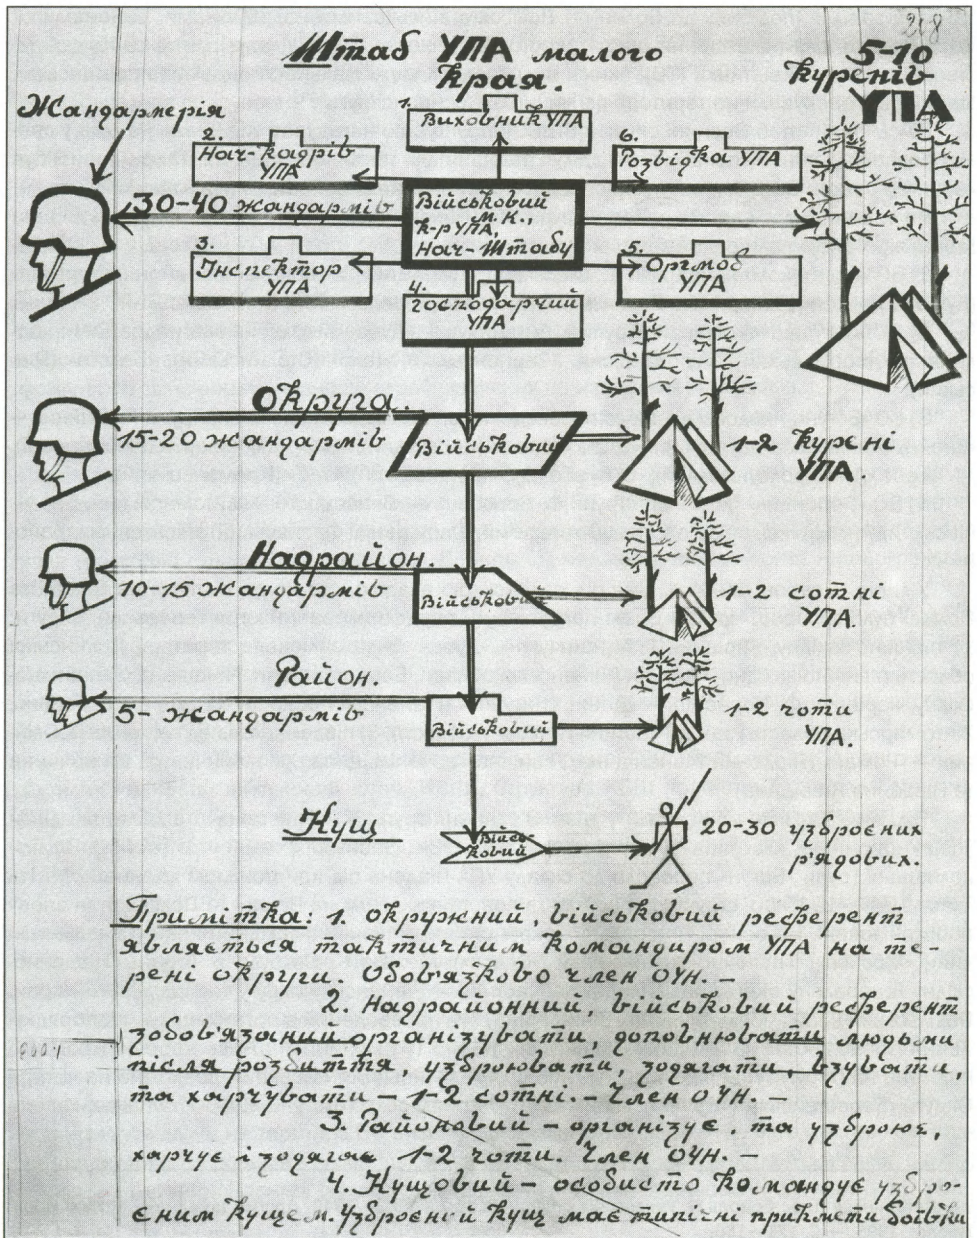 Штаб УПА малого
края.
5-10
куренів
УПА
Жандармерія
1.
Виховник УПА
2.
Нач-кадрів
УПА
6.
Розвідка УПА
30-40 жандармів
Військовий
м.к.,
к-р УПА,
Нач-Штабу
3.
Інспектор
УПА
5.
Оргмоб
УПА
4.
господарчий
УПА
Округа.
15-20 жандармів
Військовий
1-2 курені
УПА.
Надрайон.
10-15 жандармів
Військовий
1-2 сотні
УПА.
Район.
5- жандармів
Військовий
1-2 чоти
УПА.
Кущ
Війсь-
ковий
20-30 узброєних
р'ядових.
Примітка: 1. Окружний, військовий референт
являється тактичним командиром УПА на те-
рені округи. Обов'язково член ОУН.-
2. Надрайонний військовий референт
зобов'язаний організувати, доповнювати людьми
після розбиття, узброювати, зодягати, взувати,
та харчувати - 1-2 сотні. - Член ОУН. -
3. Райовий - організує, та узброює,
харчує і зодягає 1-2 чоти. Член ОУН. -
4. Кущовий - особисто командує узбро-
єним кущем. Узброєний кущ має типічні прикмети боївки